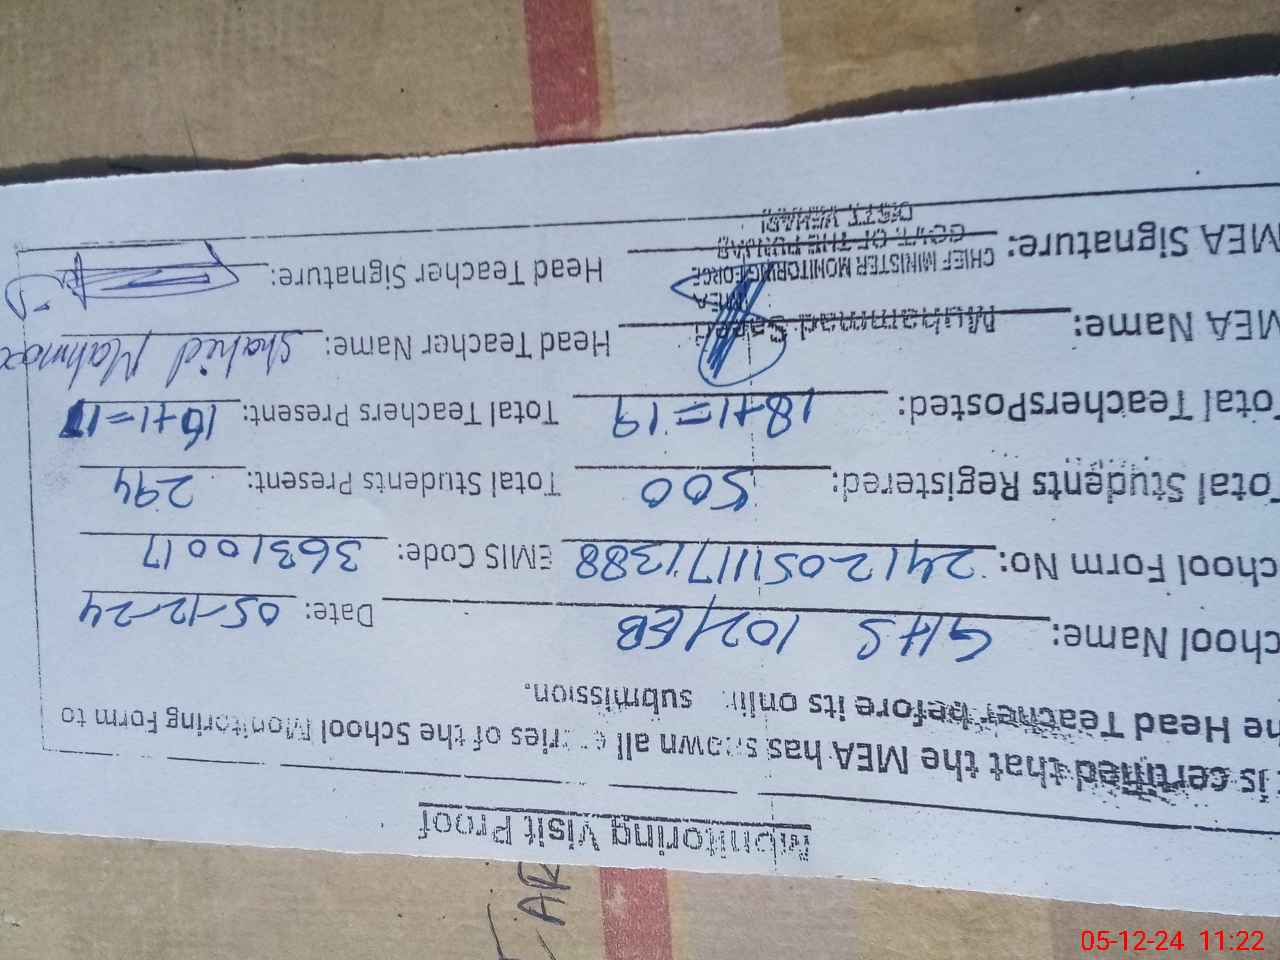 Monitoring Visit Proof
is certified that the MEA has shown all entries of the School Monitoring Form to
he Head Teacher before its online submission.
chool Name: GHS 102/EB Date: 05-12-24
chool Form No: 24120511171388 EMIS Code: 36310017
Total Students Registered: 500 Total Students Present: 294
Total TeachersPosted: 18+1=19 Total Teachers Present: 16+1=17
MEA Name: Muhammad Head Teacher Name: Shahid Mahmo
MEA Signature: Head Teacher Signature:
MEA
CHIEF MINISTER MONITORING FORCE
GOVT. OF THE PUNJAB
DISTT. VEHARI
AR
05-12-24 11:22